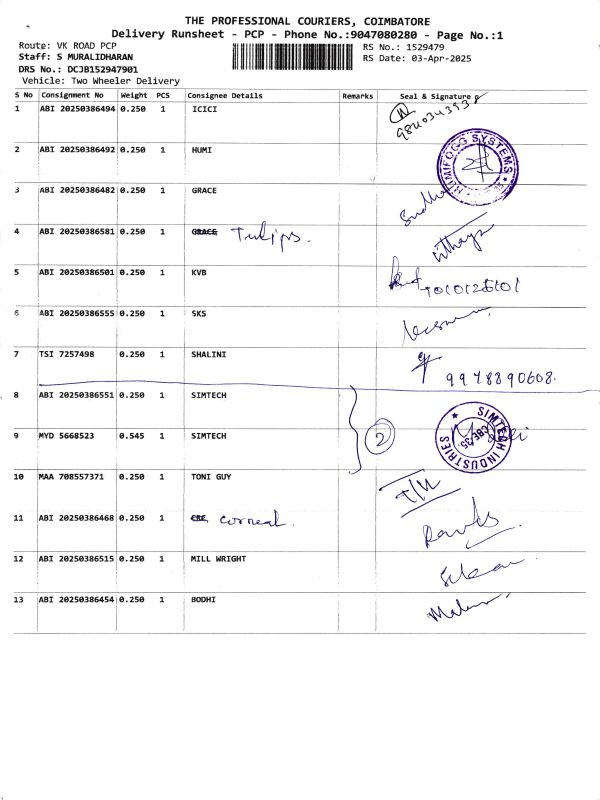 THE PROFESSIONAL COURIERS, COIMBATORE
Delivery Runsheet - PCP - Phone No.:9047080280 - Page No.:1
Route: VK ROAD PCP RS No.: 1529479
Staff: S MURALIDHARAN RS Date: 03-Apr-2025
DRS No.: DCJB152947901
Vehicle: Two Wheeler Delivery
S No Consignment No Weight PCS Consignee Details Remarks Seal & Signature
1 ABI 20250386494 0.250 1 ICICI
2 ABI 20250386492 0.250 1 HUMI
HUMIFOGG SYSTEMS
3 ABI 20250386482 0.250 1 GRACE
Sudha
4 ABI 20250386581 0.250 1 GRACE Tulips.
5 ABI 20250386501 0.250 1 KVB
6 ABI 20250386555 0.250 1 SKS
7 TSI 7257498 0.250 1 SHALINI
9978890608.
8 ABI 20250386551 0.250 1 SIMTECH
9 MYD 5668523 0.545 1 SIMTECH 2
SIMTECH INDUSTRIES CBE-35.
10 MAA 708557371 0.250 1 TONI GUY
11 ABI 20250386468 0.250 1 CBE corneal.
12 ABI 20250386515 0.250 1 MILL WRIGHT
13 ABI 20250386454 0.250 1 BODHI